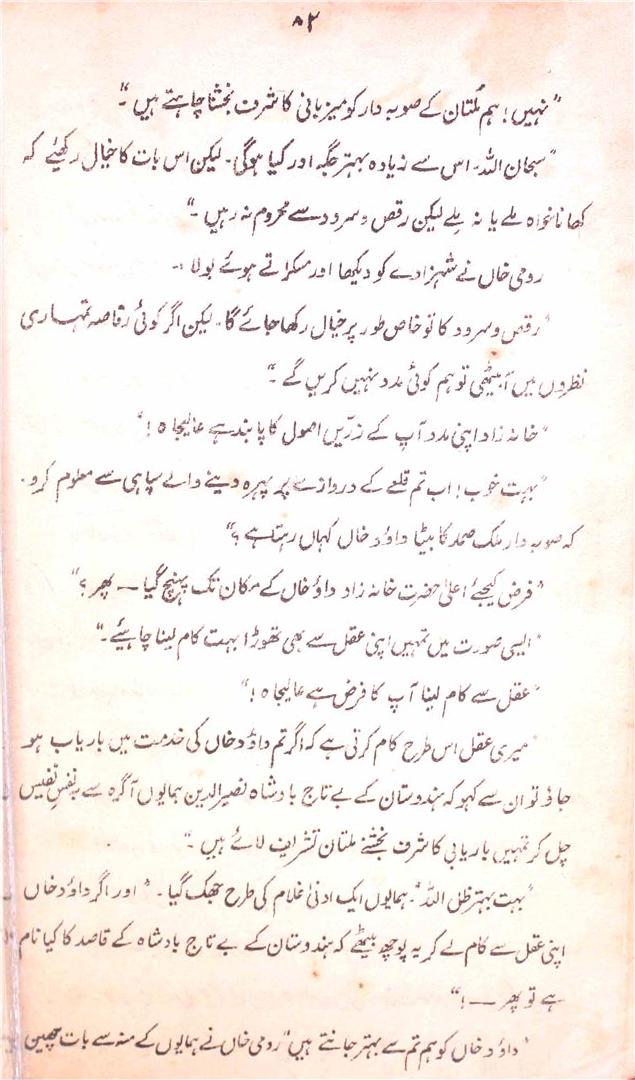 ۸۲
"نہیں! ہم ملتان کے صوبہ دار کو میزبانی کا شرف بخشنا چاہتے ہیں۔"
"سبحان اللہ۔ اس سے زیادہ بہتر جگہ اور کیا ہوگی۔ لیکن اس بات کا خیال رکھیئے کہ
کھانا خواہ ملے یا نہ ملے لیکن رقص و سرود سے محروم نہ رہیں۔"
رومی خاں نے شہزادے کو دیکھا اور مسکراتے ہوئے بولا:۔
"رقص و سرود کا تو خاص طور پر خیال رکھا جائے گا۔ لیکن اگر کوئی رقاصہ تمہاری
نظروں میں آ بیٹھی تو ہم کوئی مدد نہیں کریں گے۔"
"خانہ زاد اپنی مدد آپ کے زرّیں اصول کا پابند ہے عالیجاہ!"
"بہت خوب! اب تم قلعے کے دروازے پر پہرہ دینے والے سپاہی سے معلوم کرو۔
کہ صوبہ دار ملک صمد کا بیٹا داؤد خاں کہاں رہتا ہے؟"
"فرض کیجئے اعلیٰ حضرت خانہ زاد داؤد خاں کے مکان تک پہنچ گیا — پھر؟"
"ایسی صورت میں تمہیں اپنی عقل سے بھی تھوڑا بہت کام لینا چاہیئے۔"
"عقل سے کام لینا آپ کا فرض ہے عالیجاہ!"
"میری عقل اس طرح کام کرتی ہے کہ اگر تم داؤد خاں کی خدمت میں باریاب ہو
جاؤ تو ان سے کہو کہ ہندوستان کے بے تاج بادشاہ نصیرالدین ہمایوں آگرہ سے بہ نفسِ نفیس
چل کر تمہیں باریابی کا شرف بخشنے ملتان تشریف لائے ہیں۔"
"بہت بہتر ظل اللہ"۔ ہمایوں ایک ادنیٰ غلام کی طرح جھک گیا۔ "اور اگر داؤد خاں
اپنی عقل سے کام لے کر یہ پوچھ بیٹھے کہ ہندوستان کے بے تاج بادشاہ کے قاصد کا کیا نام
ہے تو پھر —!"
"داؤد خاں کو ہم تم سے بہتر جانتے ہیں" رومی خاں نے ہمایوں کے منہ سے بات چھین